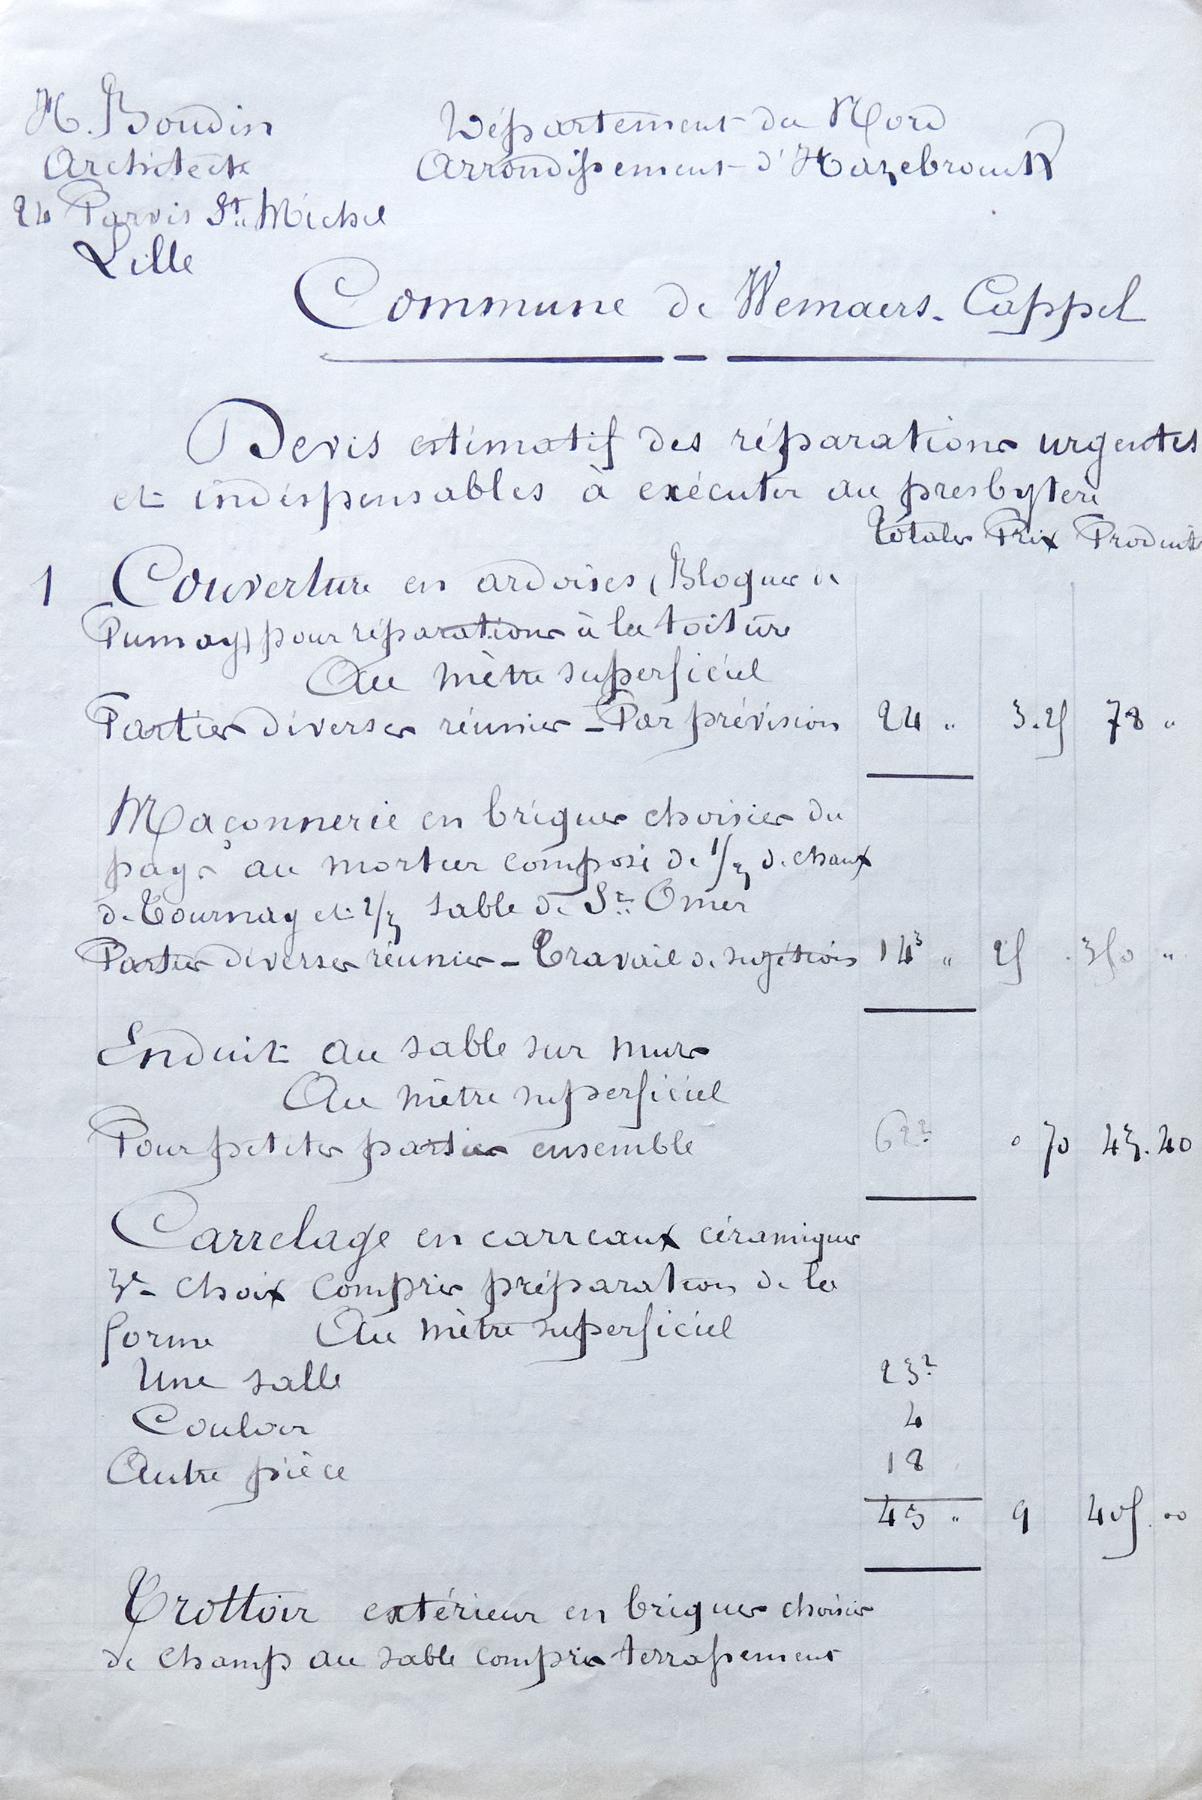 H. Boudin
Architecte
24 Parvis St. Michel
Lille
Département du Nord
Arrondissement d'Hazebrouck
Commune de Wemaers-Cappel
Devis estimatif des réparations urgentes
et indispensables à exécuter au presbytère
Totales Prix Produits
1 Couverture en ardoises (Bloques de
Fumay) pour réparations à la toiture
Au mètre superficiel
Parties diverses réunies - Par prévision 24 " 3.25 78 "
Maçonnerie en briques choisies du
pays au mortier composé de 1/3 de chaux
de Tournay et 2/3 sable de St. Omer
Parties diverses réunies - Travail de sujétion 14³ " 25 350 "
Enduit au sable sur murs
Au mètre superficiel
Pour petites parties ensemble 62² 0 70 43.40
Carrelage en carreaux céramiques
3e choix compris préparation de la
forme Au mètre superficiel
Une salle 23²
Couloir 4
Autre pièce 18
45 " 9 405.00
Trottoir extérieur en briques choisies
de champ au sable compris terrassement